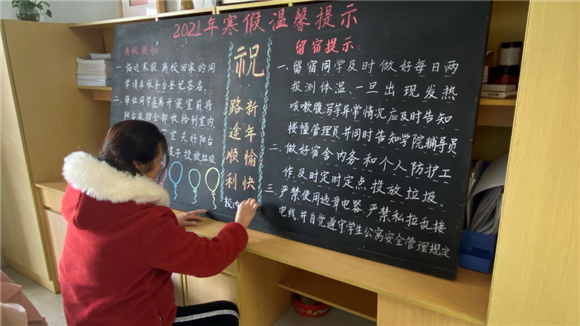 2021年寒候温馨提示
离校提示：
一、临近寒假离校回家的同
学请在平台登记签名。
二、每位同学在离开寝室前将
祝
路途顺利
新年愉快
留宿提示：
一、留宿同学及时做好每日两
报测体温，一旦出现发热
咳嗽腹泻等异常情况应及时告知
楼幢管理员并同时告知学院辅导员
二、做好宿舍内务和个人防护工
作及时定时定点投放垃圾
三、严禁使用违章电器，严禁私拉乱接
电线，并自觉遵守学生公寓安全管理规定